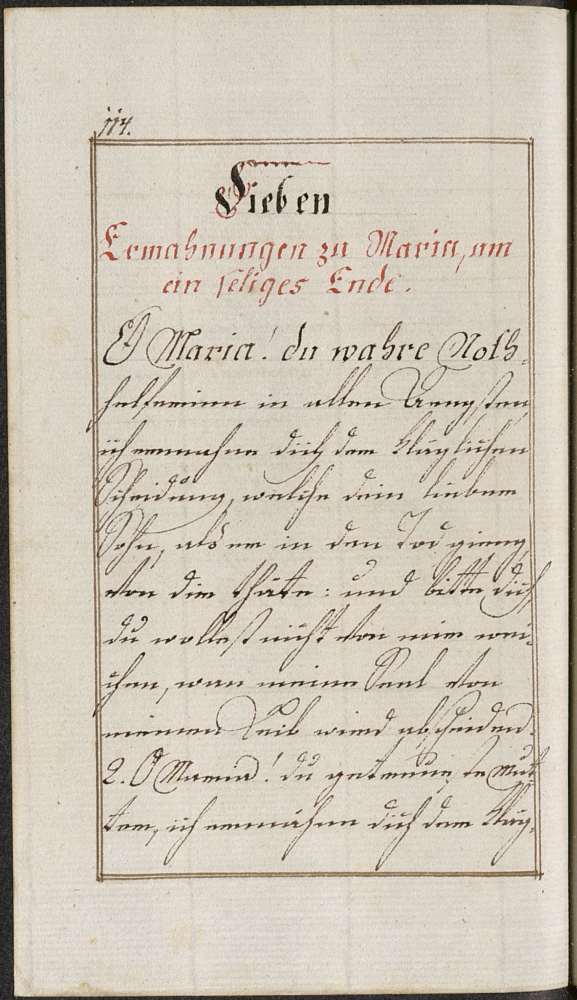 114.
Sieben
Ermahnungen zu Maria, um
ein seliges Ende.
O Maria! du wahre Noth-
helferinn in allen Aengsten,
ich ermahne dich der kläglichen
Scheidung, welche dein lieber
Sohn, als er in den Tod gieng,
von dir thäte: und bitte dich,
du wollest nicht von mir wei-
chen, wan meine Seel von
meinem Leib wird abscheiden.
2. O Maria! du getreuste Mut-
ter, ich ermahne dich der kläg-